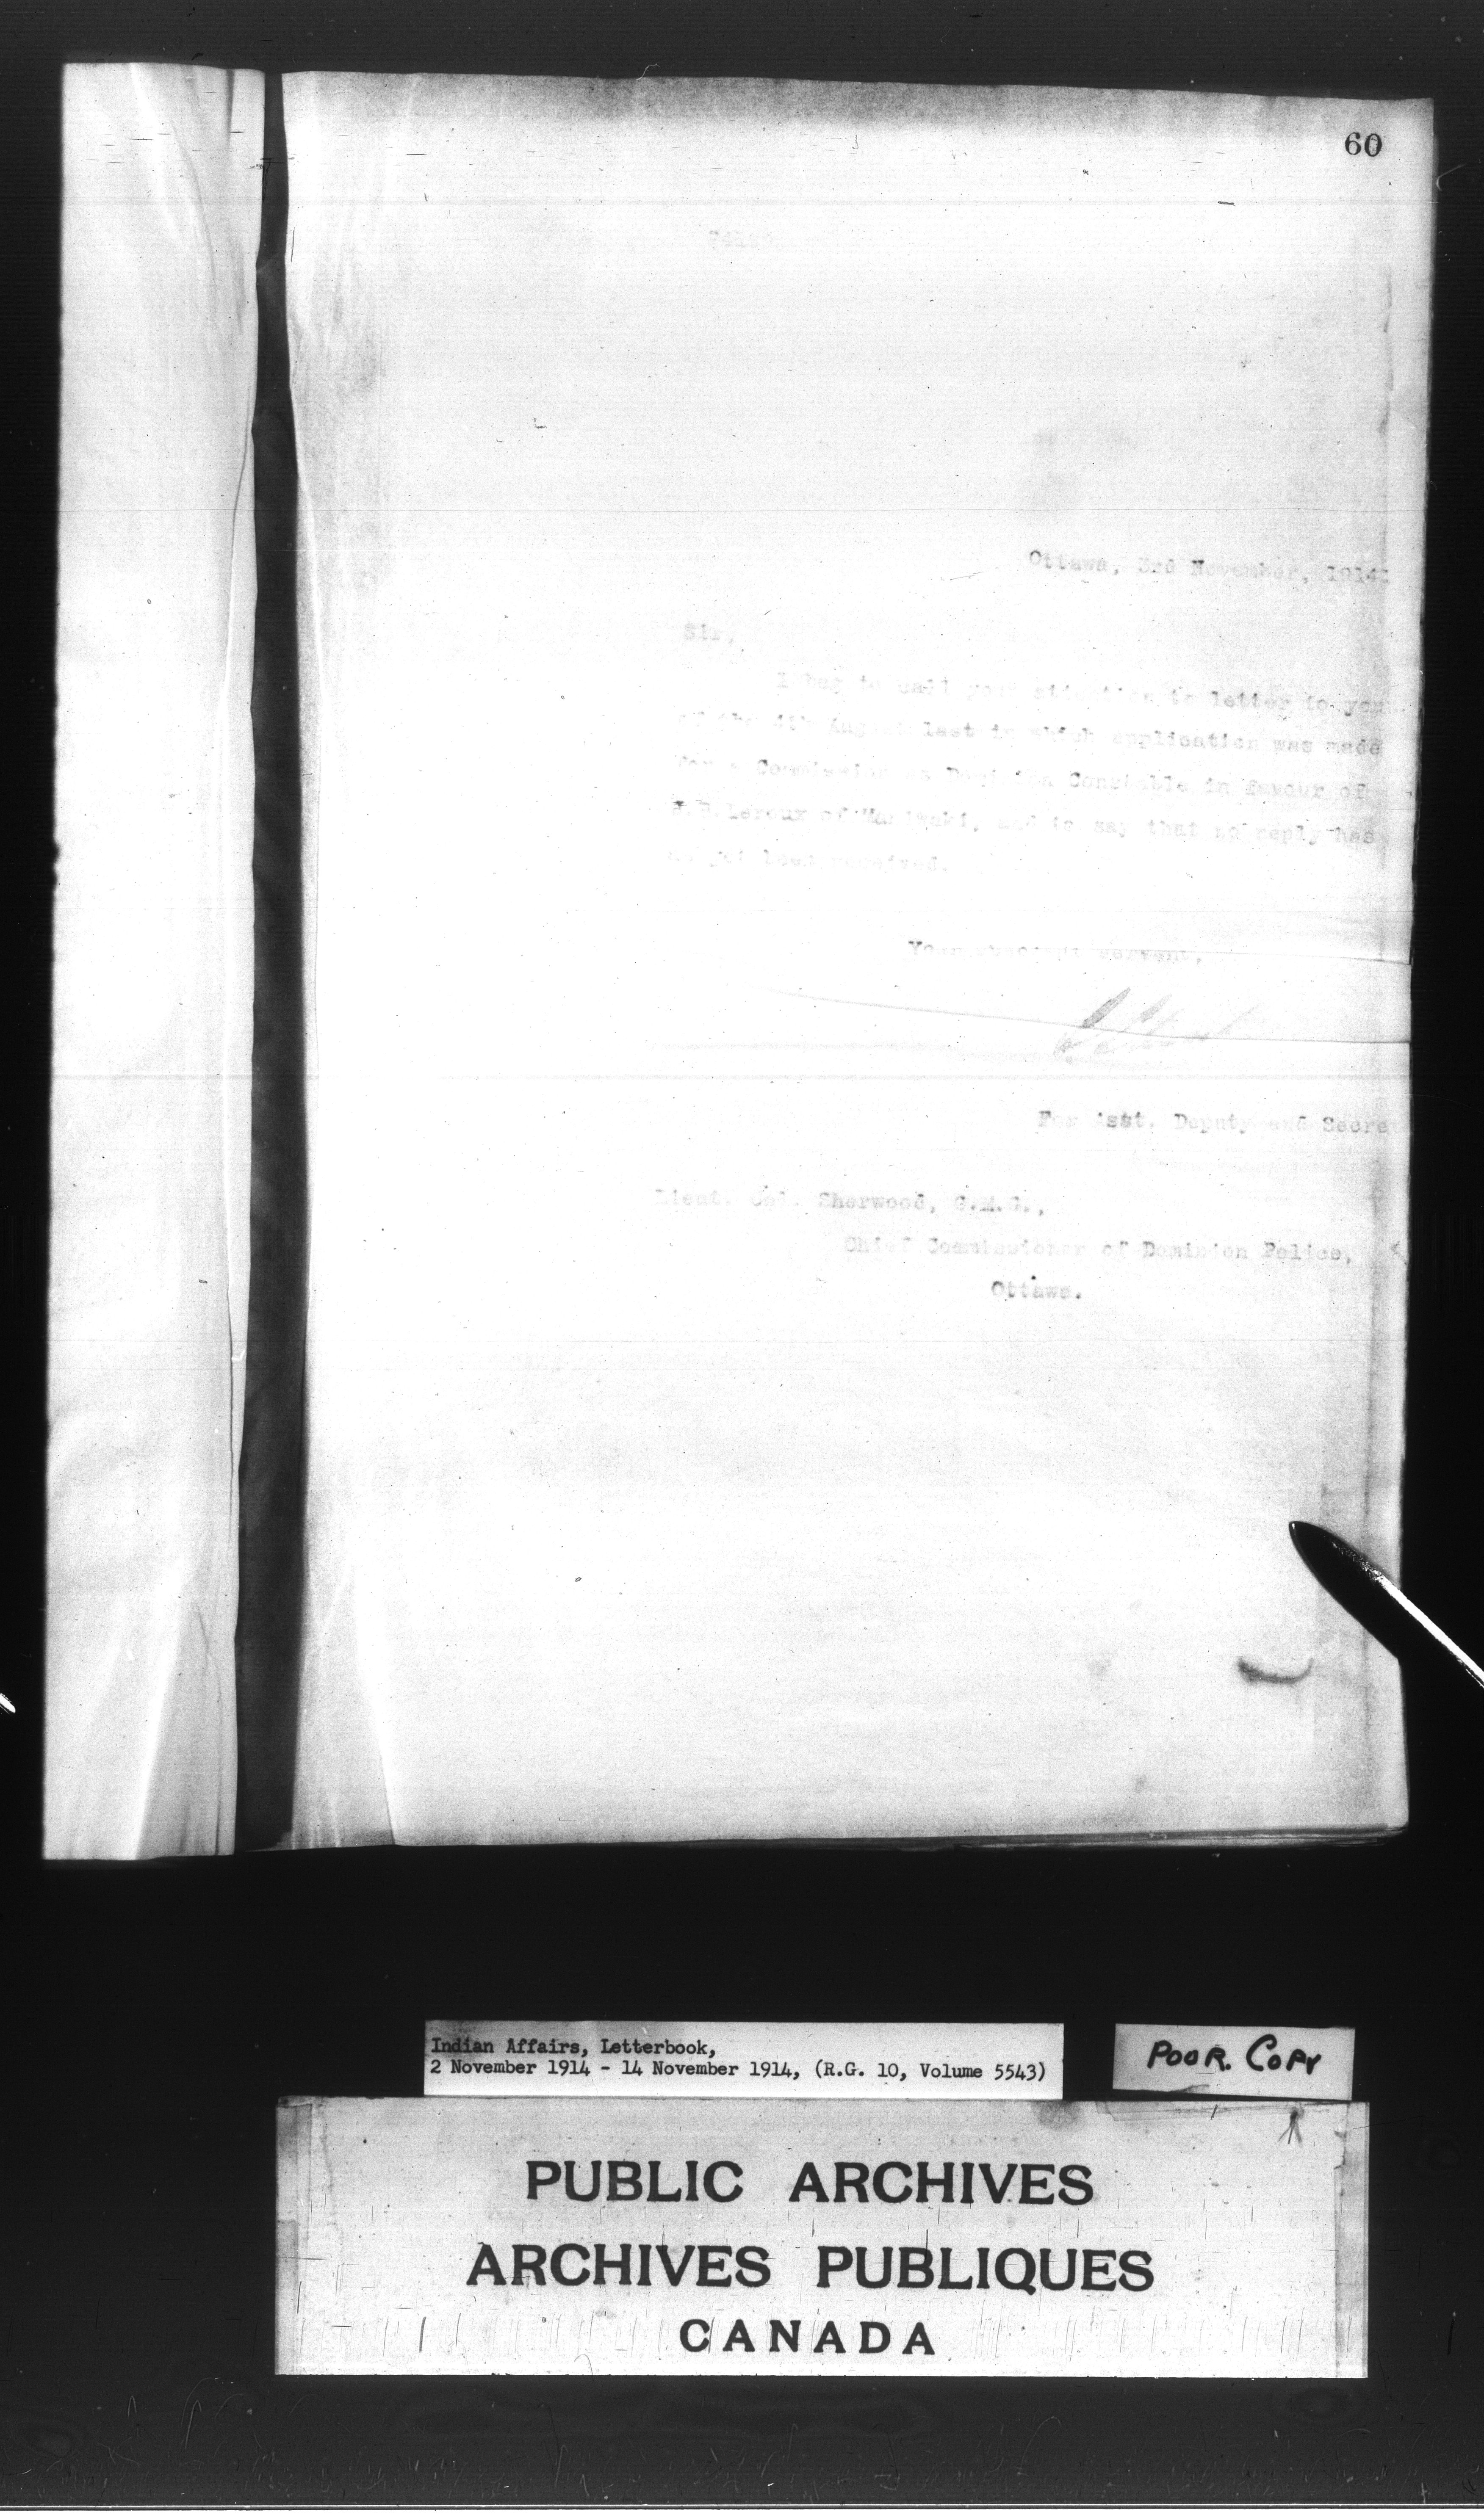 60
Ottawa, 3rd November, 1914
Sir,
I beg to call your attention to letter to you
of the 4th August last in which application was made
for a Commission as Dominion Constable in favour of
Leroux of Maniwaki, and to say that no reply has
as yet been received.
Your obedient servant,
For Asst. Deputy and Secre
Lieut. Col. Sherwood, C.M.G.,
Chief Commissioner of Dominion Police,
Ottawa.
Indian Affairs, Letterbook,
2 November 1914 - 14 November 1914, (R.G. 10, Volume 5543)
POOR. COPY
PUBLIC ARCHIVES
ARCHIVES PUBLIQUES
CANADA